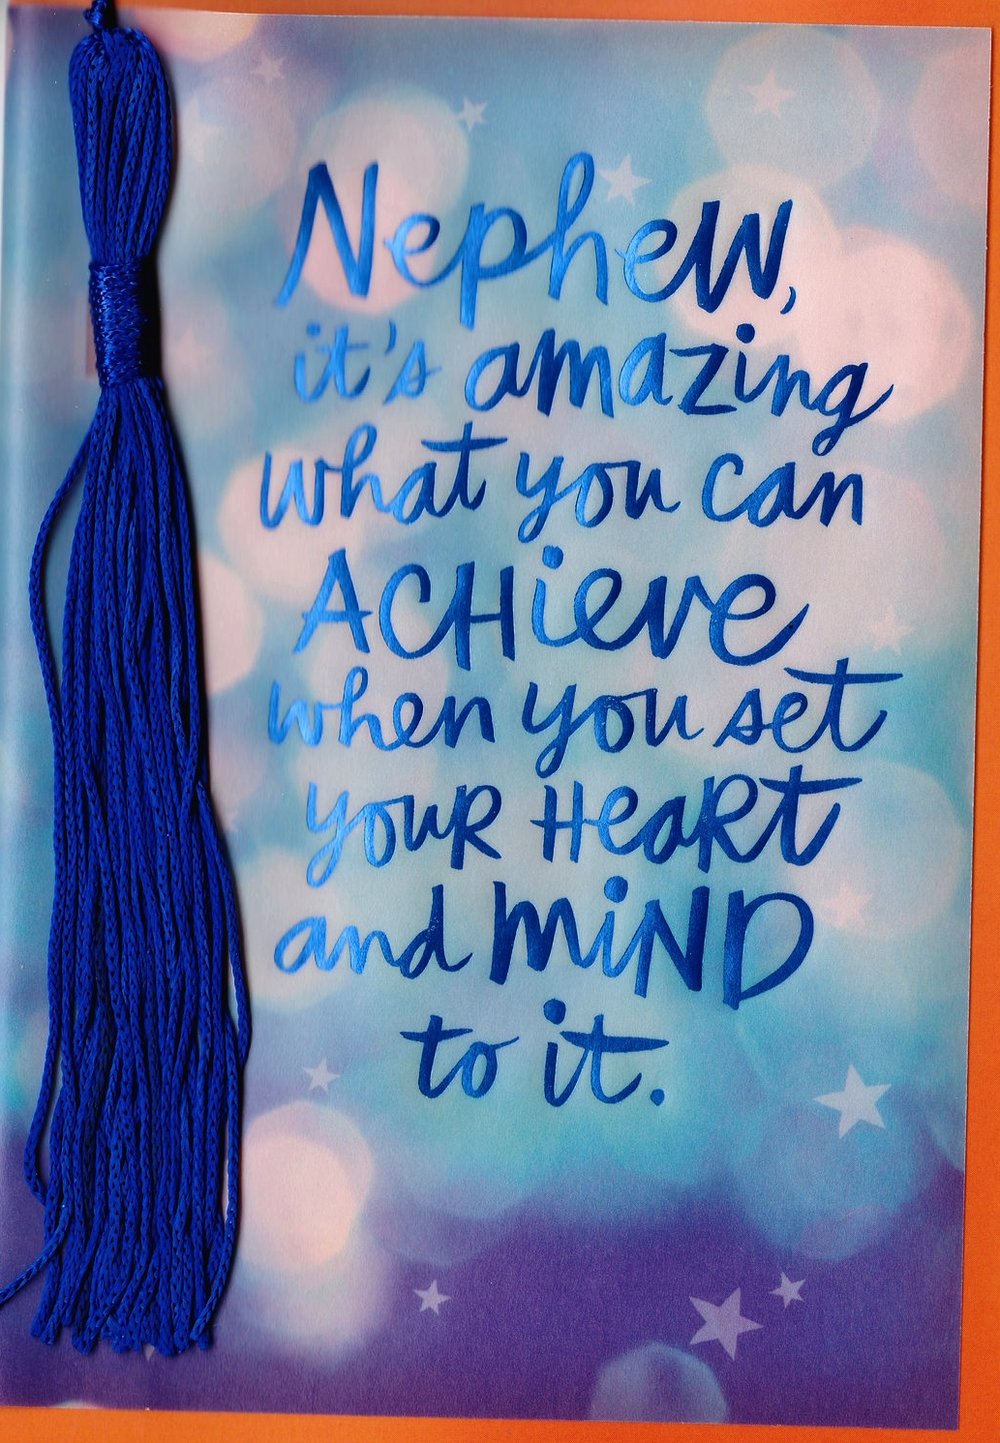 Nephew,
it's amazing
what you can
ACHieve
when you set
youR HeaRt
and MiND
to it.